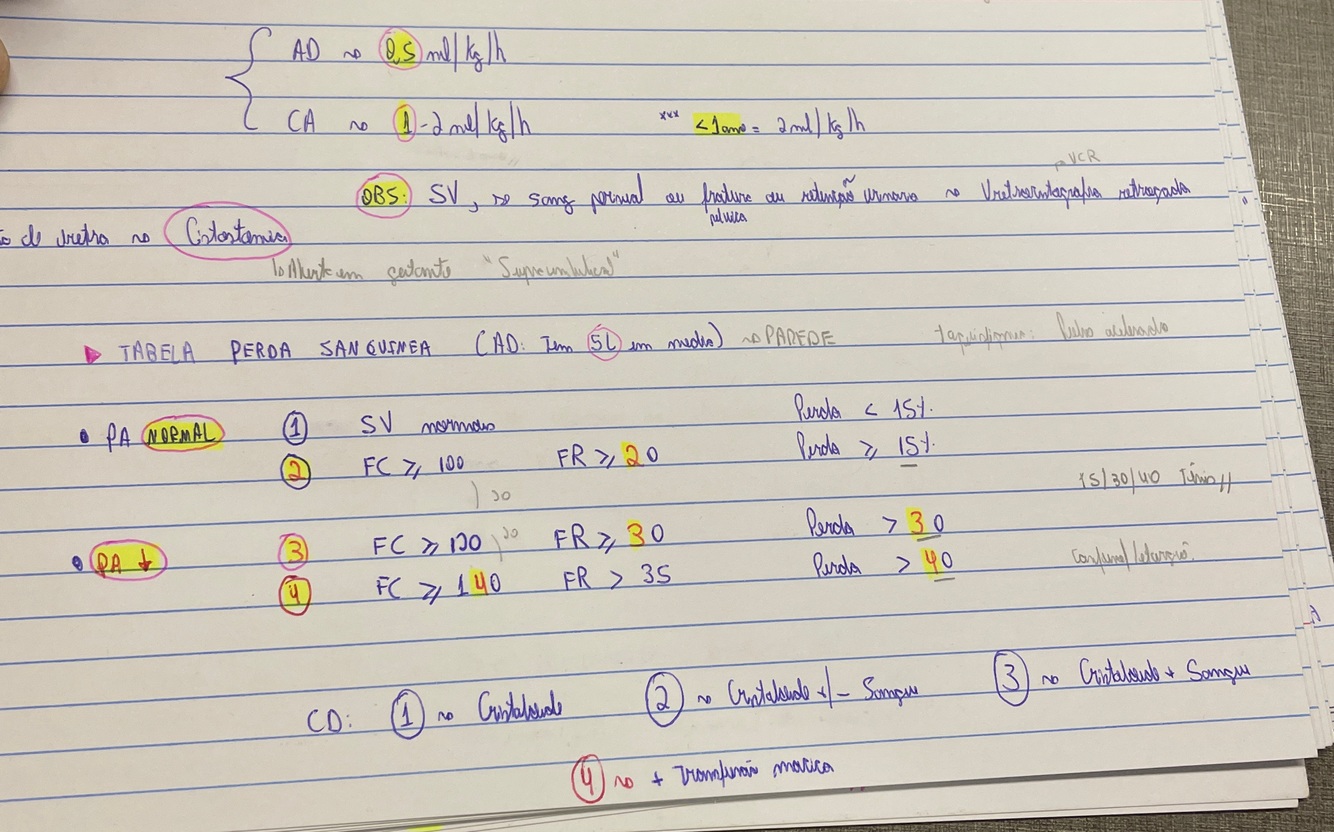 AD ~> 0,5 ml/kg/h
CA ~> 1-2 ml/kg/h *** <1 ano = 2 ml/kg/h
OBS: SV, ~> sang perineal ou fratura pelvica ou retenção urinaria ~> Uretrocistografia retrograda
VCR
de uretra ~> Cistostomia
"Supraumbilical"
TABELA PERDA SANGUINEA (AD: Tem 5L em media) ~> PAREDE
• PA NORMAL 1 SV normais Perda < 15%
2 FC ≥ 100 FR ≥ 20 Perda ≥ 15%
20
15/30/40 Tênis //
• PA ↓ 3 FC ≥ 120 20 FR ≥ 30 Perda > 30
4 FC ≥ 140 FR > 35 Perda > 40
CD: 1 ~> Cristaloide 2 ~> Cristaloide +/- Sangue 3 ~> Cristaloide + Sangue
4 ~> + Transfusão maciça